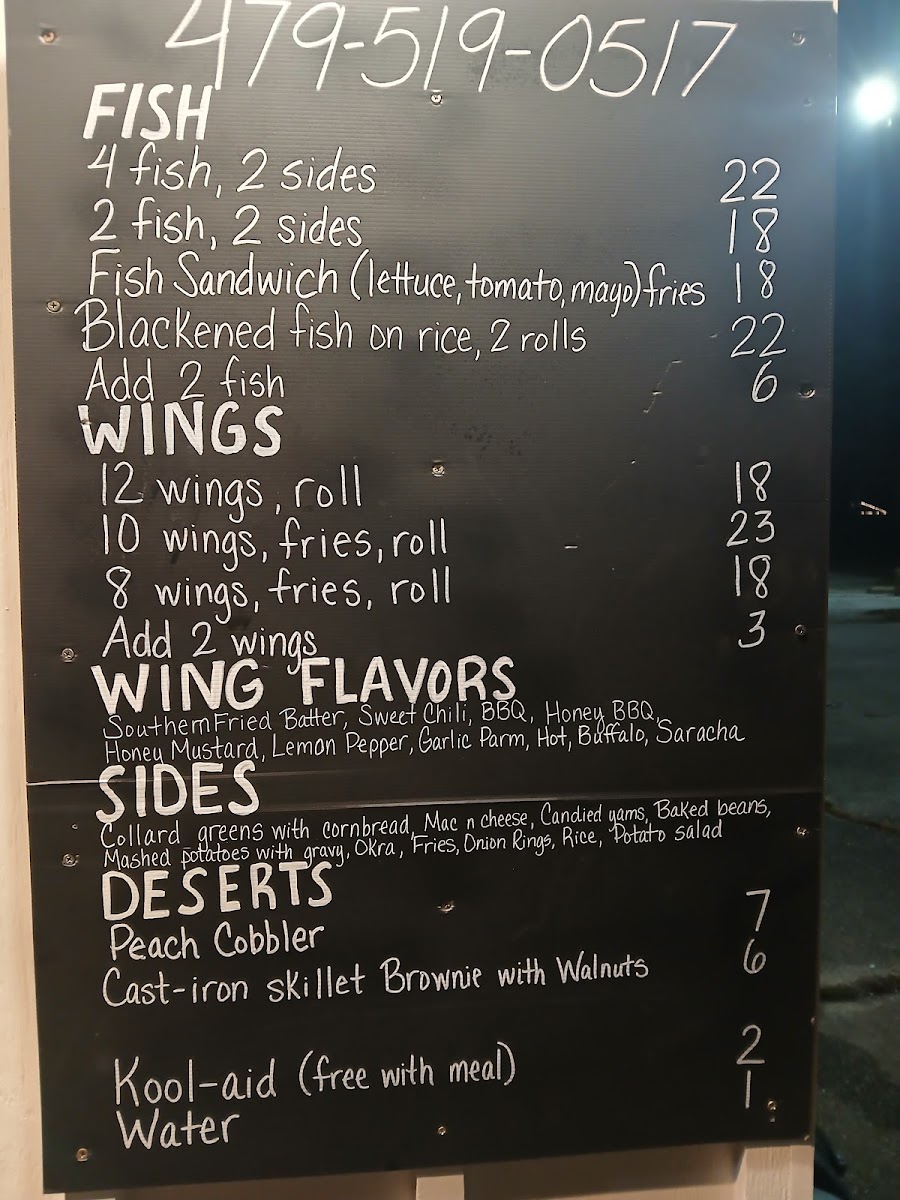 479-519-0517
FISH
4 fish, 2 sides 22
2 fish, 2 sides 18
Fish Sandwich (lettuce, tomato, mayo) fries 18
Blackened fish on rice, 2 rolls 22
Add 2 fish 6
WINGS
12 wings, roll 18
10 wings, fries, roll 23
8 wings, fries, roll 18
Add 2 wings 3
WING FLAVORS
Southern Fried Batter, Sweet Chili, BBQ, Honey BBQ,
Honey Mustard, Lemon Pepper, Garlic Parm, Hot, Buffalo, Saracha
SIDES
Collard greens with cornbread, Mac n cheese, Candied yams, Baked beans,
Mashed potatoes with gravy, Okra, Fries, Onion Rings, Rice, Potato salad
DESERTS
Peach Cobbler 7
Cast-iron skillet Brownie with Walnuts 6
Kool-aid (free with meal) 2
Water 1